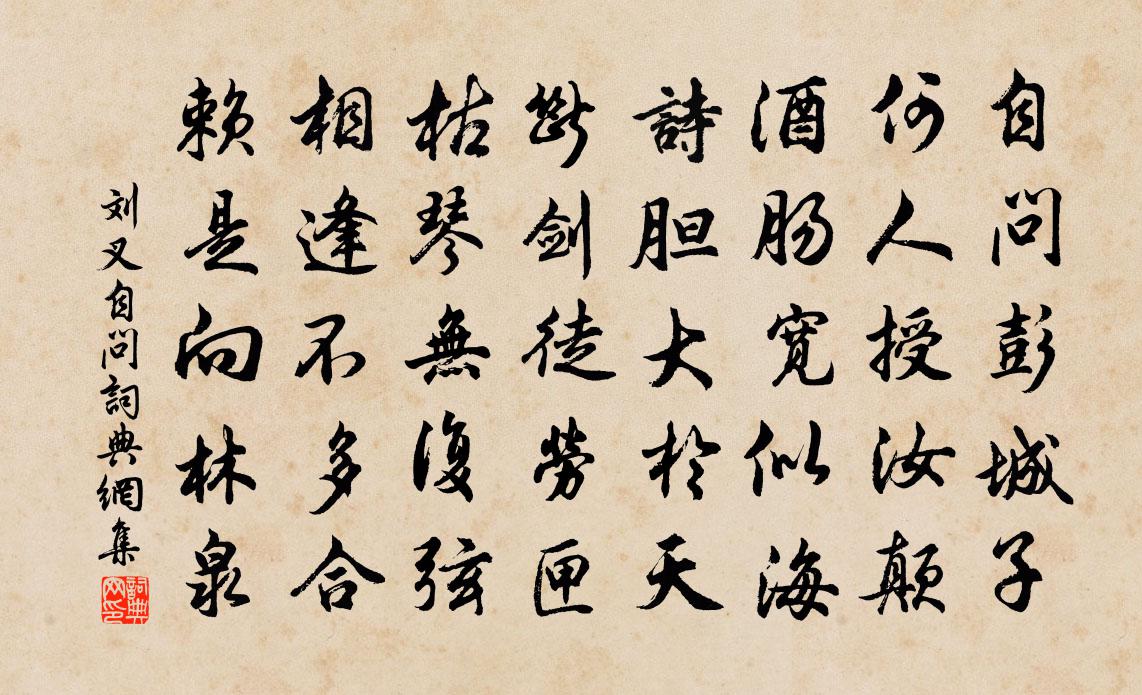 自問彭城子
何人授汝颠
酒肠寬似海
詩胆大於天
斷剑徒勞匣
枯琴無復弦
相逢不多合
赖是向林泉
刘叉自問詞典網集
詞典网印